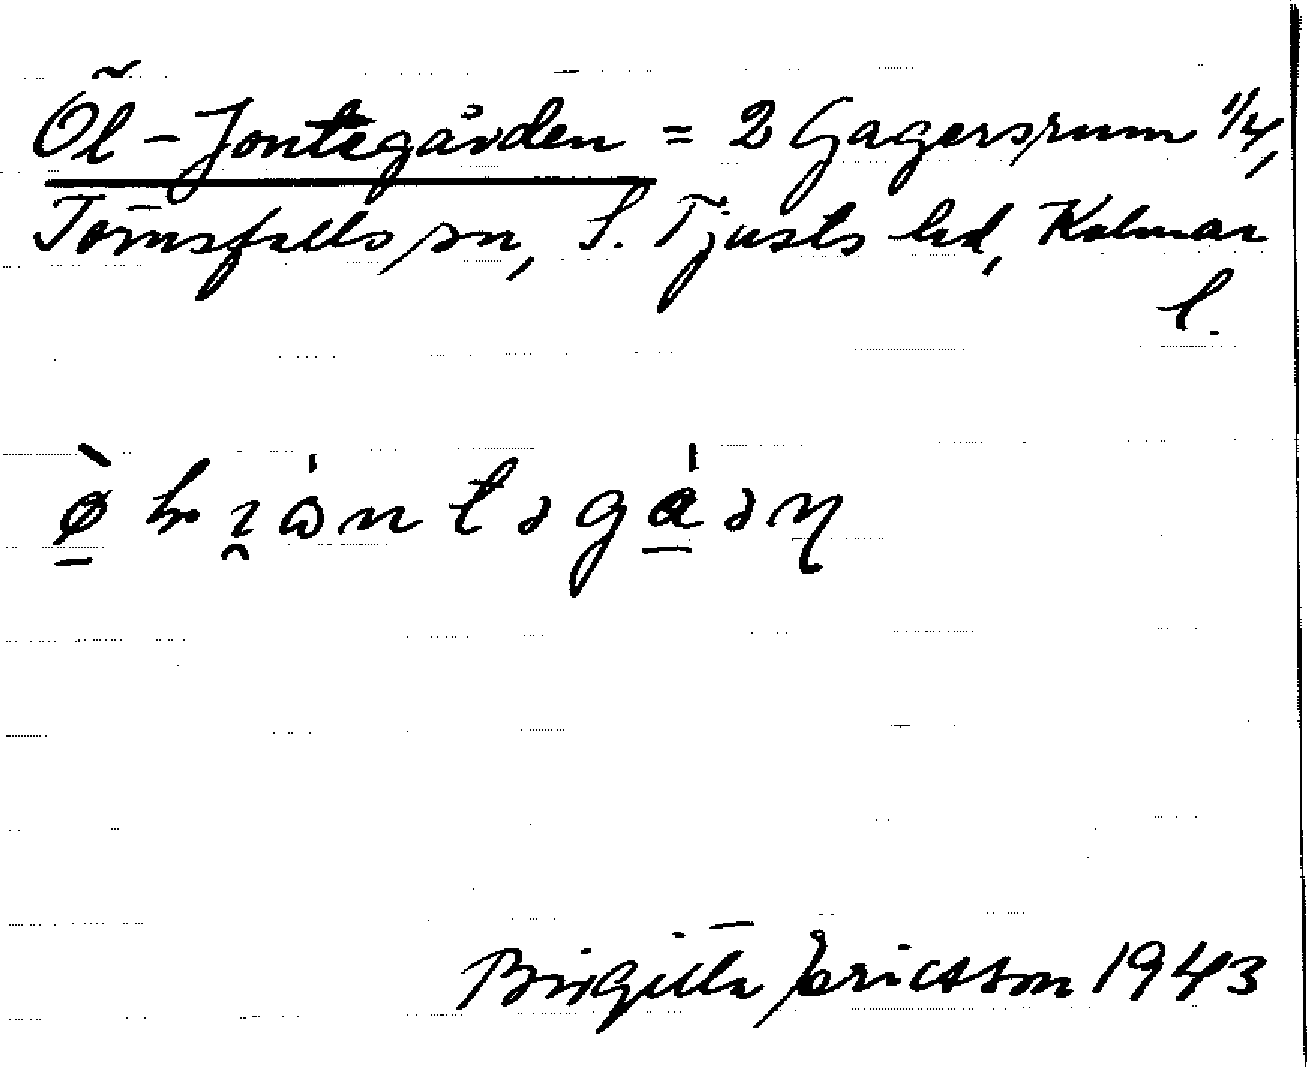 Öl-Jontegården = 2 Gagersrum 1/4,
Törnsfalls sn, S. Tjusts hd, Kalmar
l.
Birgitta Ericsson 1943